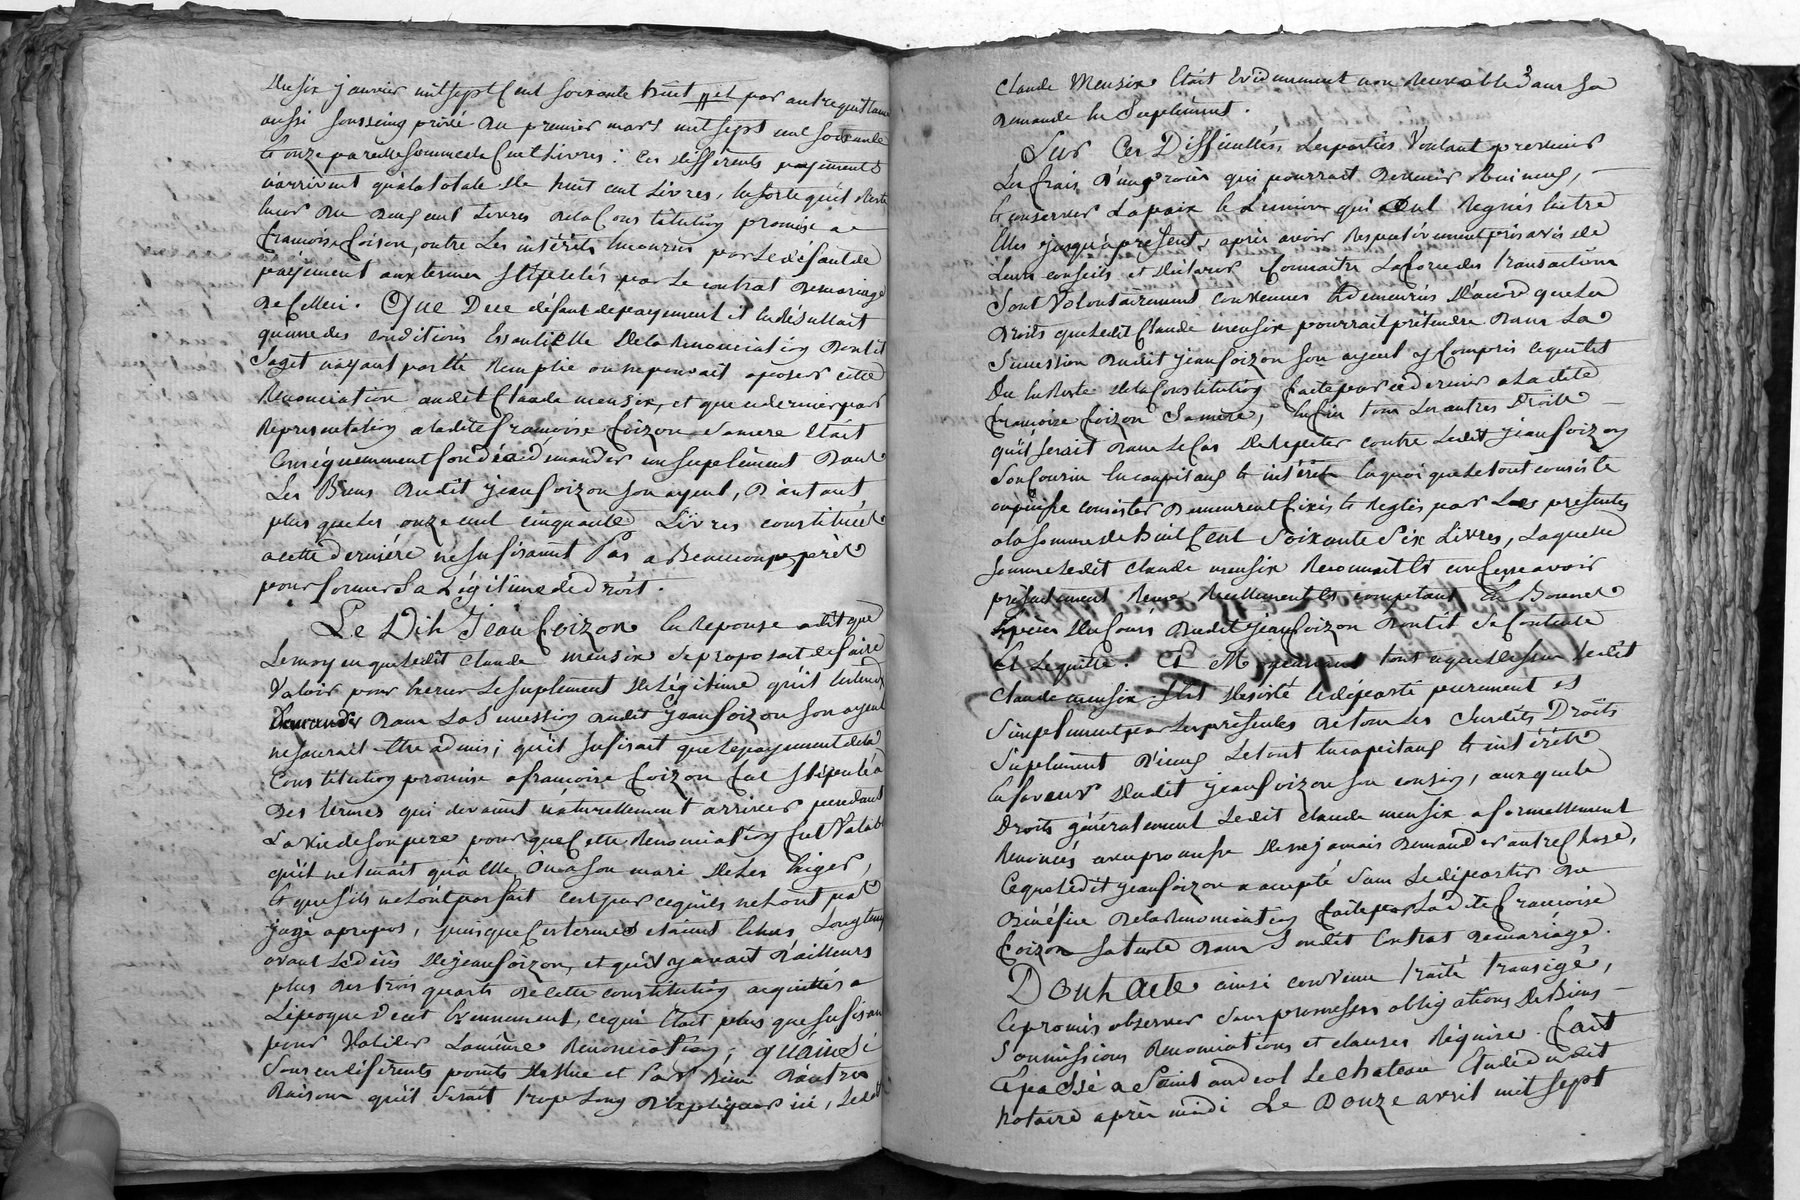 du six janvier mil sept Cent soixante huit et par autre quittance
aussi sousseing privé du premier mars mil sept cent soixante
et onze pareille somme de Cent Livres : Ces différents payements
n'arrivent qu'a la totale de huit cent Livres, en sorte qu'il reste
encor du cent Livres de la Constitution promise a
françoise Coison, outre Les intérêts encourus par Le défaut de
payement aux termes stipulés par Le contrat de mariage
de Celleci. Que Dece défaut de payement il en résultait
qu'une des conditions Essentielle de la renonciation dont il
s'agit n'ayant pas été remplie on ne pouvait oposer cette
Renonciation audit Claude mensix, et que ce dernier par
Representation a ladite françoise Coizon sa mere était
Conséquemment fondé a demander un suplément dans
Les Biens dudit jean Coizon son ayeul, d'autant
plus que Les onze cent cinquante Livres constituées
a cette derniére ne sufisaient Pas a Beaucoup près
pour former sa Légitime de droit.
Le Dit Jean Coizon en reponse a dit que
Le moyen que Ledit Claude mensix se proposait de faire
Valoir pour exercer Le suplement de Légitime qu'il entend
demander dans La Succession dudit jean Coizon son ayeul
ne saurait être admis ; qu'il sufisait que Le payement de la
Constitution promise a francoise Coizon fut stipulé a
des termes qui devaient naturellement arriver pendant
La vie de son pere pour que Cette renonciation fut Valable
qu'il ne tenait qu'a elle, ou a son mari de Les exiger,
et que s'ils ne l'ont pas fait c'est par ce qu'ils ne l'ont pas
jugé apropos, puisque Ces termes etaient échus Longtems
avant Le décès de jean Coizon, et qu'il y avait d'ailleurs
plus des trois quarts de Cette constitution acquittés a
L'époque de cet évennement, ce qui était plus que sufisant
pour Valider La même Renonciation ; qu'ainsi
sous ces diférents points de Vue et Par Bien d'autres
Raisons qu'il serait trop Long d'expliquer ici, Ledit
Claude Mensix était évidemment non recevable dans sa
demande en Suplément.
Sur Ces Difficultés, Les parties Voulant prevenir
Les frais d'un procès qui pourrait devenir ruineux,
et conserver La paix et L'union qui ont regnés entre
Elles jusqu'a présent, après avoir respectivement pris avis de
Leurs conseils et déclarer Connaitre La force des transactions
Sont Volontairement convenues et demeurées d'accord que Les
Droits que Ledit Claude mensix pourrait prétendre dans La
Succession dudit jean Coizon son ayeul y Compris ce qui est
Du en reste de la Constitution faite par ce dernier a Ladite
françoise Coizon sa mere, enfin tous Les autres Droits
qu'il serait dans Le Cas de repeter contre Ledit jean Coizon
son Cousin en capitaux et intérêts en quoi que Le tout consiste
ou puisse consister demeurent fixés et reglés par Les présentes
a la somme de huit Cent Soixante six Livres, Laquelle
somme Ledit Claude mensix reconnait et confesse avoir
présentement reçue réellement et comptant En Bonnes
Espèces du Cours dudit jean Coizon dont il se Contente
Et Le quitte. Et Moyennant tout ce que dessus Ledit
Claude mensix s'est désisté et départi purement et
Simplement par Les présentes de tous Les Susdits Droits
Suplément d'iceux Le tout en capitaux et intérêts
en faveur dudit jean Coizon son cousin, aux quels
Droits généralement Ledit Claude mensix a formellement
renoncés avec promesse de ne jamais demander autre Chose,
Ce que Ledit jean Coizon a accepté sans se départir du
Bénéfice de la renonciation faite par Ladite francoise
Coizon sa tante dans Son dit Contrat de mariage.
Dont Acte ainsi convenu traité transigé,
et promis observer sous promesses obligations de Biens
Soumissions Renonciations et clauses Réquise. fait
Et passé a Saint andeol Le chateau Etude dudit
notaire après midi Le Douze avril mil sept